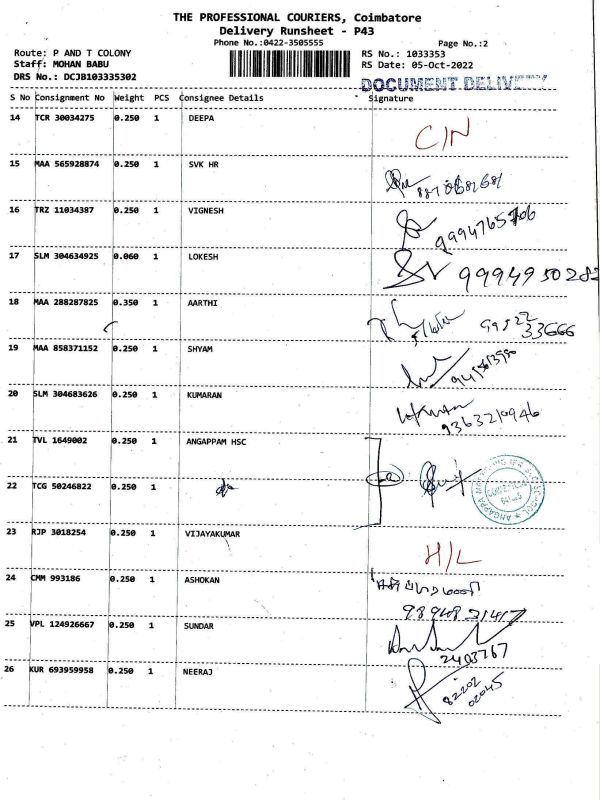 THE PROFESSIONAL COURIERS, Coimbatore
Delivery Runsheet - P43
Phone No.:0422-3505555
Page No.:2
Route: P AND T COLONY
RS No.: 1033353
Staff: MOHAN BABU
RS Date: 05-Oct-2022
DRS No.: DCJB103335302
DOCUMENT DELIVERY
S No Consignment No Weight PCS Consignee Details Signature
14 TCR 30034275 0.250 1 DEEPA C/N
15 MAA 565928874 0.250 1 SVK HR
16 TRZ 11034387 0.250 1 VIGNESH
17 SLM 304634925 0.060 1 LOKESH 9994950282
18 MAA 288287825 0.350 1 AARTHI 33666
19 MAA 858371152 0.250 1 SHYAM
20 SLM 304683626 0.250 1 KUMARAN 9363210946
21 TVL 1649002 0.250 1 ANGAPPAM HSC
22 TCG 50246822 0.250 1
23 RJP 3018254 0.250 1 VIJAYAKUMAR H/L
24 CMM 993186 0.250 1 ASHOKAN
25 VPL 124926667 0.250 1 SUNDAR 2403767
26 KUR 693959958 0.250 1 NEERAJ 82202
02045